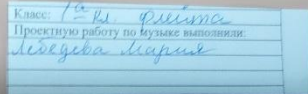 Класс: 1а кл. флейта
Проектную работу по музыке выполнили:
Лебедева Мария